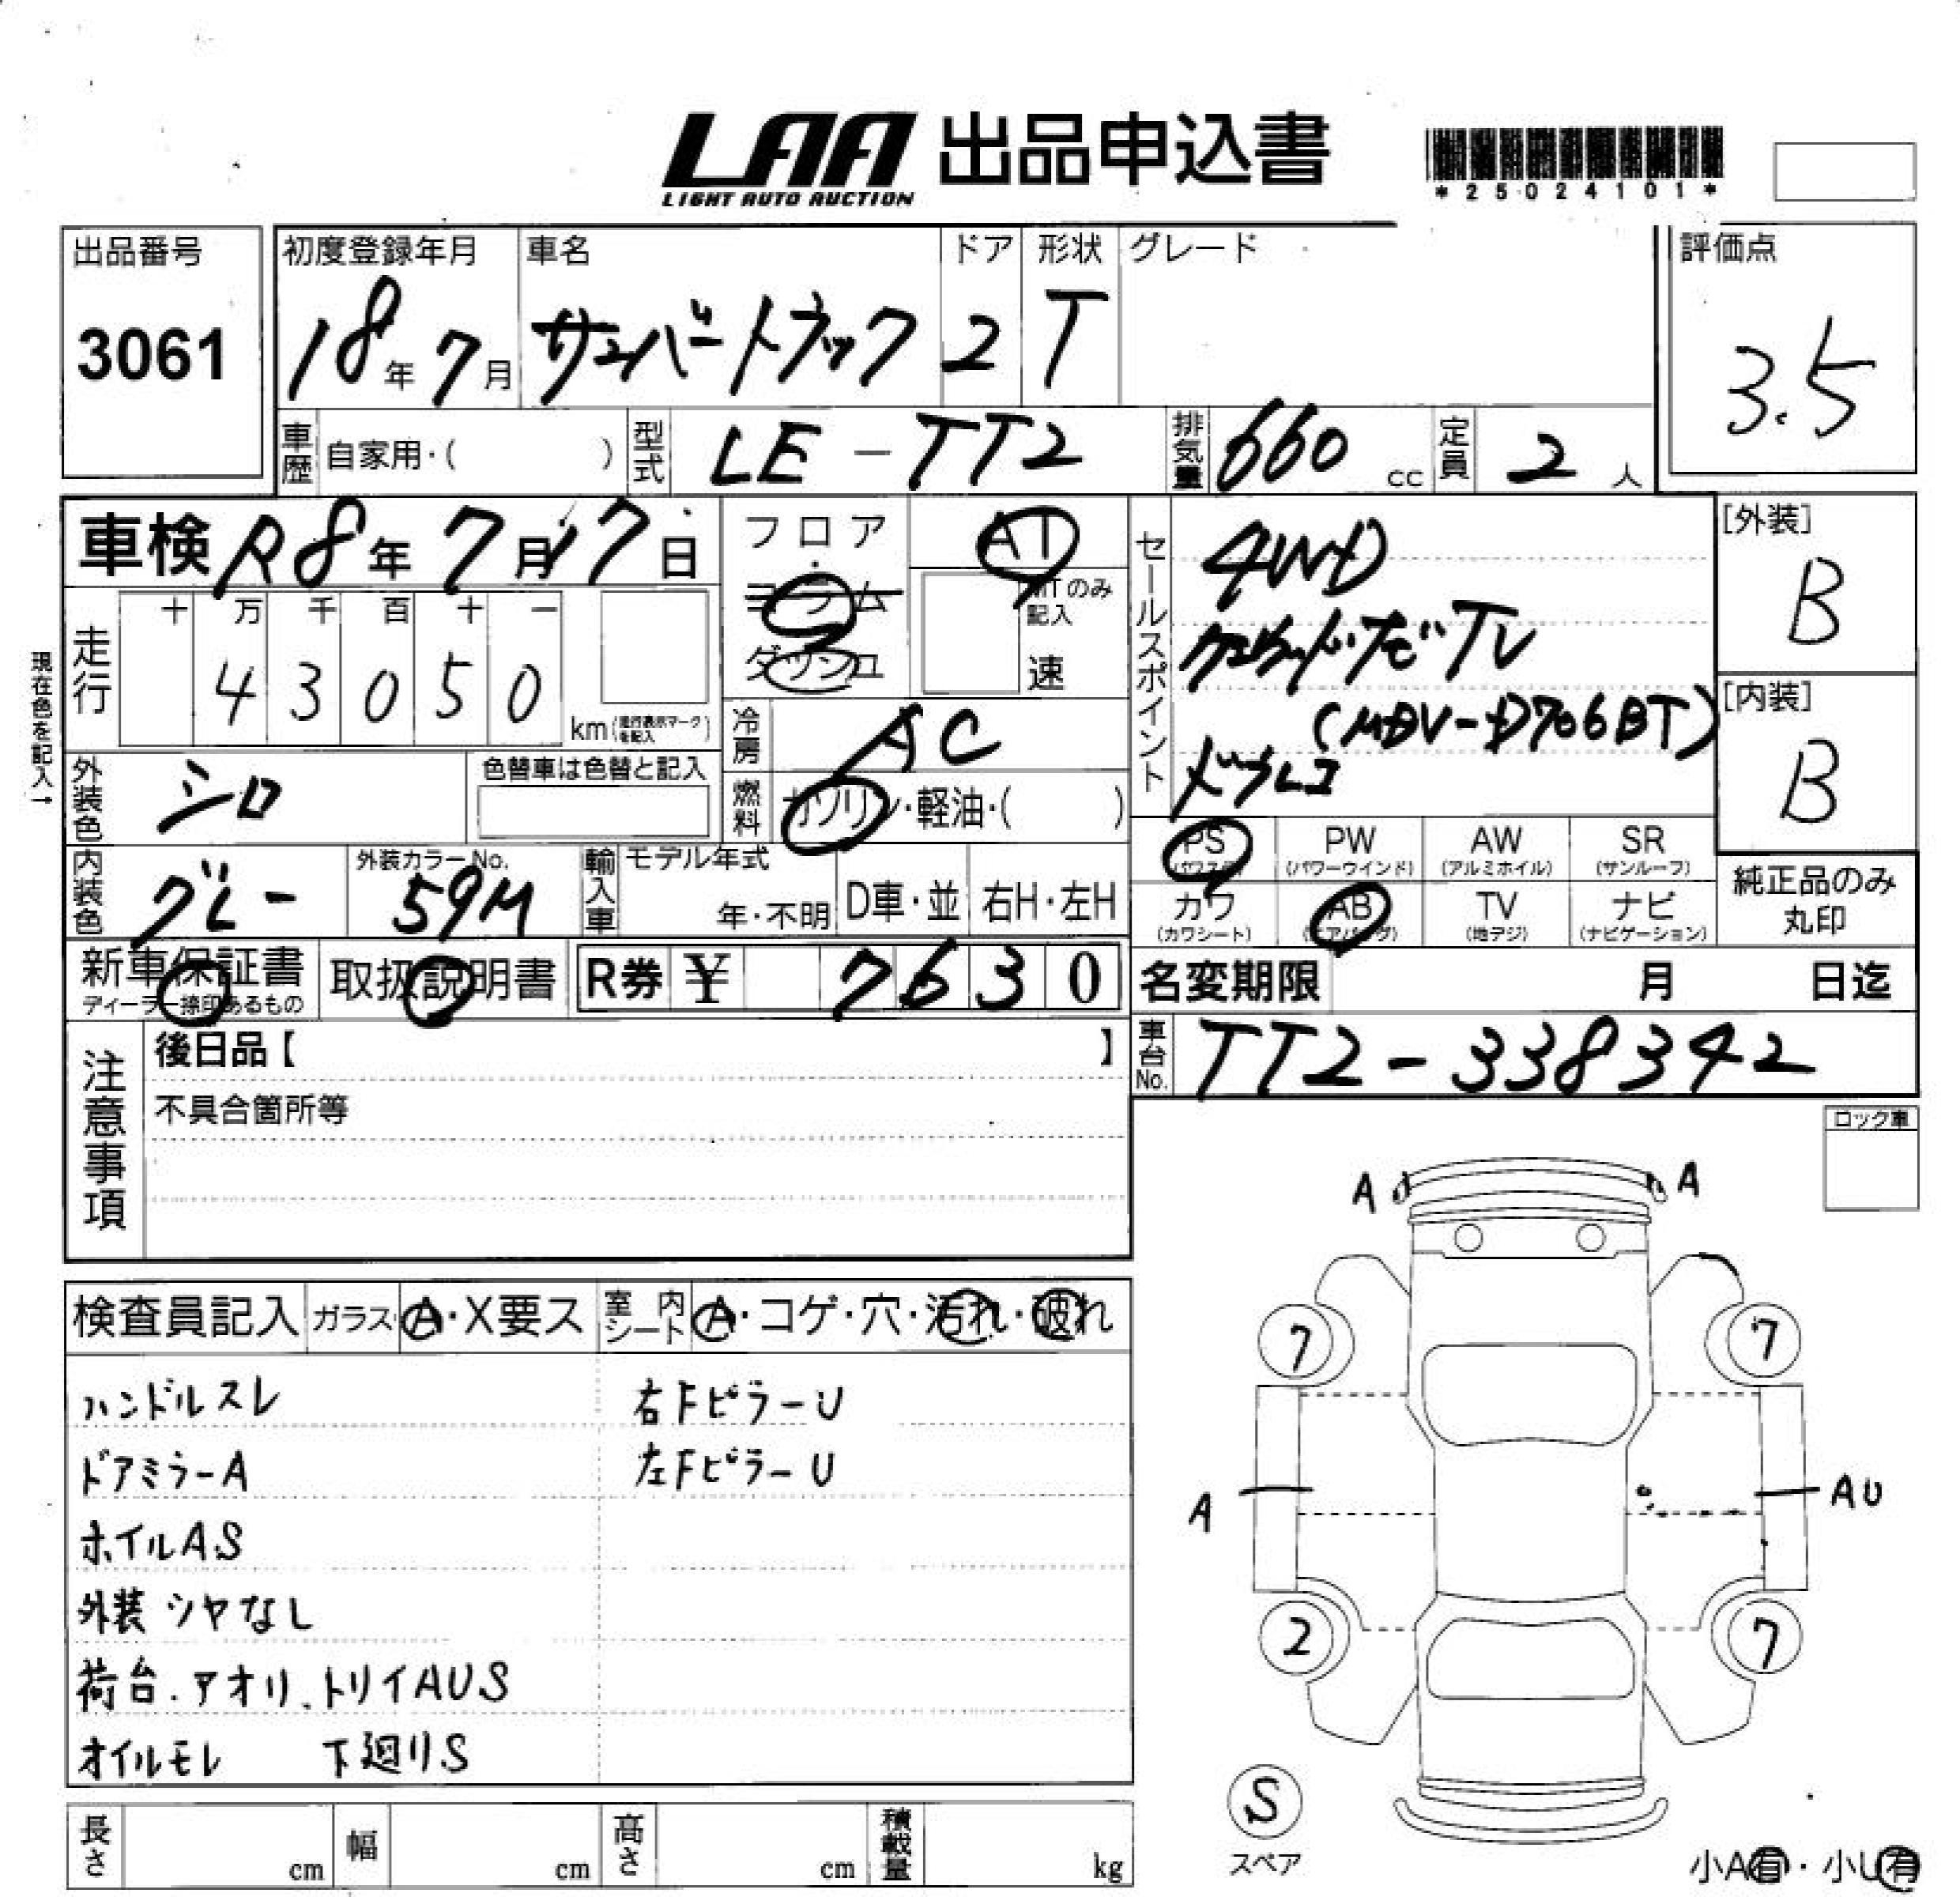 LAA 出品申込書
LIGHT AUTO AUCTION
*25024101*
出品番号
3061
初度登録年月
18年7月
車名
サンバートラック
ドア
2
形状
T
グレード
評価点
3.5
車歴 自家用・( )
型式 LE-TT2
排気量 660 cc
定員 2 人
車検 R8年7月17日
フロア・コラム・ダッシュ
AT
MTのみ記入
速
セールスポイント
4WD
TV
(MDV-D706BT)
ドラレコ
[外装]
B
[内装]
B
現在色を記入→
走行
十 万 千 百 十 一
4 3 0 5 0
km(走行表示マークを記入)
冷房 AC
外装色 シロ
色替車は色替と記入
燃料 ガソリン・軽油・( )
PS (パワステ)
PW (パワーウインド)
AW (アルミホイル)
SR (サンルーフ)
カワ (カワシート)
AB (エアバッグ)
TV (地デジ)
ナビ (ナビゲーション)
純正品のみ丸印
内装色 グレー
外装カラーNo. 59M
輸入車 モデル年式 年・不明
D車・並
右H・左H
新車保証書
ディーラー捺印あるもの
取扱説明書
R券 ¥ 7630
名変期限 月 日迄
車台No. TT2-338342
注意事項
後日品【 】
不具合箇所等
ロック車
A A
7 7
A AU
2 7
S
スペア
小A有・小U有
検査員記入 ガラス A・X要ス 室内シート A・コゲ・穴・汚れ・破れ
ハンドルスレ 右FピラーU
ドアミラーA 左FピラーU
ホイルAS
外装 シヤなし
荷台.アオリ.トリイAUS
オイルモレ 下廻りS
長さ cm
幅 cm
高さ cm
積載量 kg